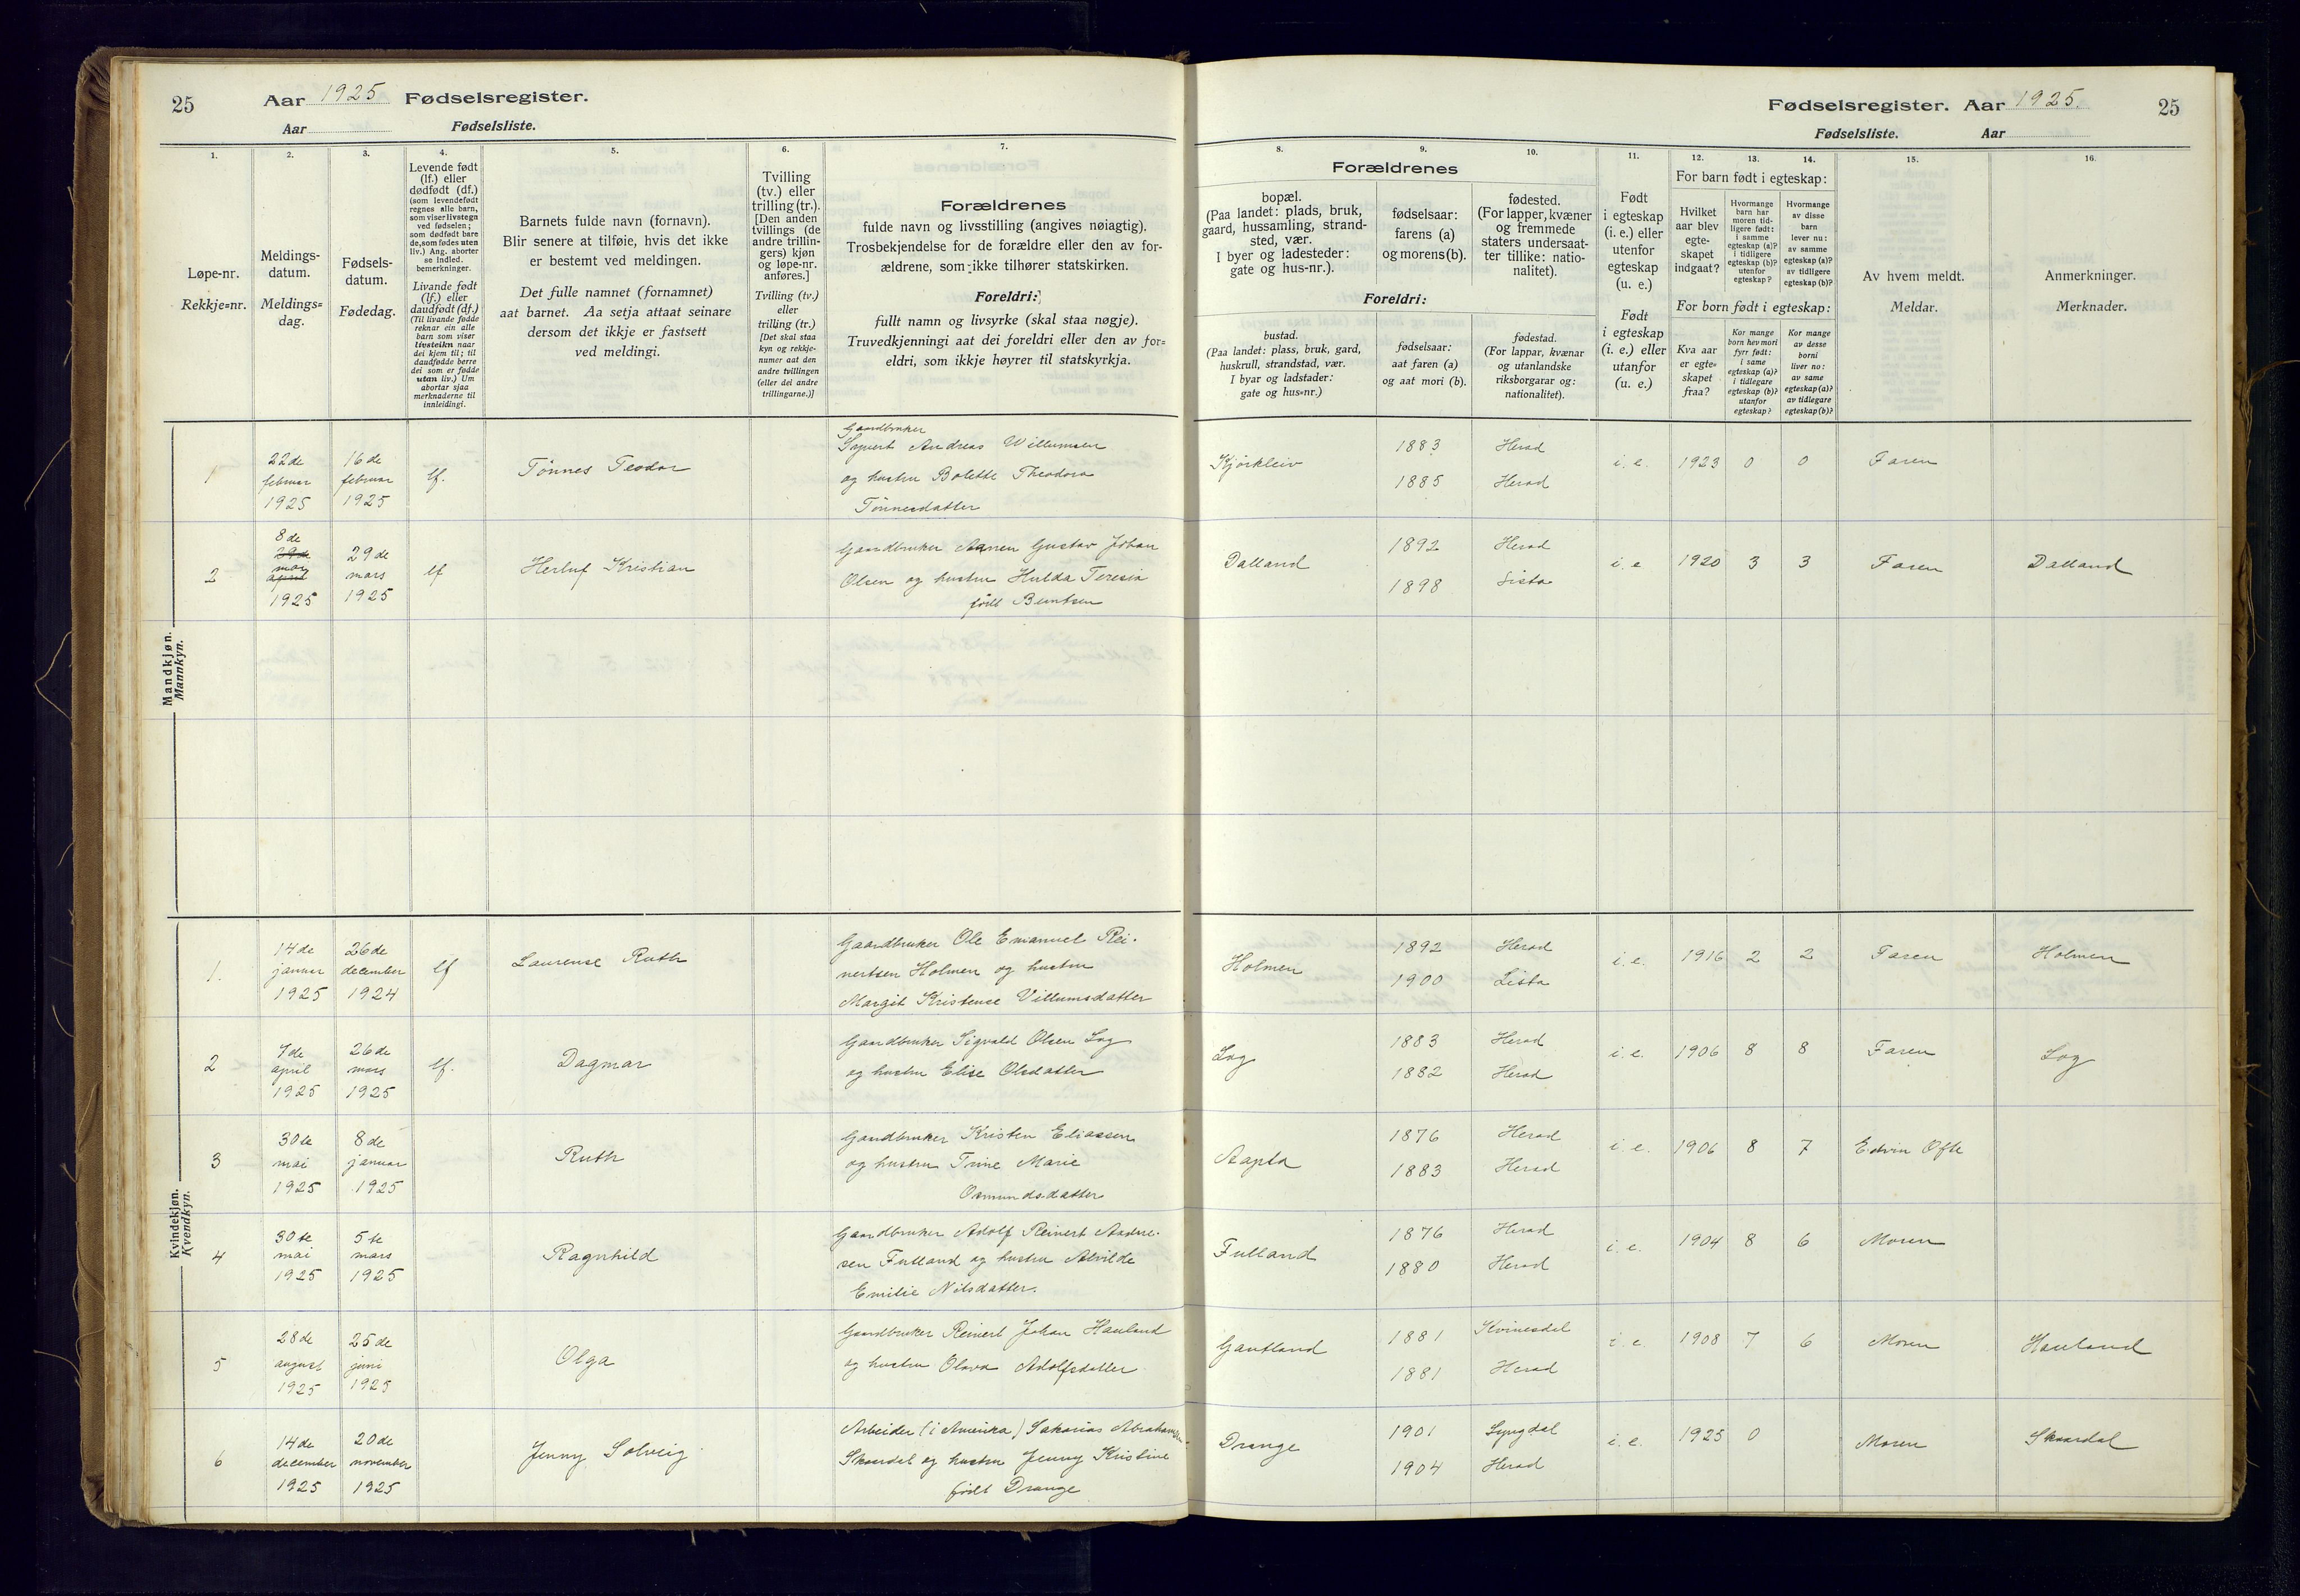 25 Aar 1925 Fødselsregister.
Aar Fødselsliste.
Fødselsregister. Aar 1925. 25
Fødselsliste. Aar
1. 2. 3. 4. 5. 6. 7.
Løpe-nr.
Rekkje=nr.
Meldings-
datum.
Meldings=
dag.
Fødsels-
datum.
Fødedag.
Levende født
(lf.) eller
dødfødt (df.)
(som levendefødt
regnes alle barn,
som viser livstegn
ved fødselen;
som dødfødt bare
de, som fødes uten
liv.) Ang. aborter
se indled.
bemerkninger.
Livande født
(lf.) eller
daudfødt (df.)
(Til livande fødde
reknar ein alle
barn som viser
livsteikn naar
dei kjem til; til
daudfødde berre
dei som er fødde
utan liv.) Um
abortar sjaa
merknaderne til
innleidingi.
Barnets fulde navn (fornavn).
Blir senere at tilføie, hvis det ikke
er bestemt ved meldingen.
Det fulle namnet (fornamnet)
aat barnet. Aa setja attaat seinare
dersom det ikkje er fastsett
ved meldingi.
Tvilling
(tv.) eller
trilling (tr.).
[Den anden
tvillings (de
andre trillin-
gers) kjøn
og løpe-nr.
anføres.]
Tvilling (tv.)
eller
trilling (tr.)
[Det skal staa
kyn og rekkje-
numer aat den
andre tvillingen
(eller dei andre
trillingarne.)]
Forældrenes
fulde navn og livsstilling (angives nøiagtig).
Trosbekjendelse for de forældre eller den av for-
ældrene, som ikke tilhører statskirken.
Foreldri:
fullt namn og livsyrke (skal staa nøgje).
Truvedkjenningi aat dei foreldri eller den av for=
eldri, som ikkje høyrer til statskyrkja.
8. 9. 10. 11. 12. 13. 14. 15. 16.
Forældrenes
bopæl.
(Paa landet: plads, bruk,
gaard, hussamling, strand-
sted, vær.
I byer og ladesteder:
gate og hus-nr.).
fødselsaar:
farens (a)
og morens (b).
fødested.
(For lapper, kvæner
og fremmede
staters undersaat-
ter tillike: natio-
nalitet).
Foreldri:
bustad.
(Paa landet: plass, bruk, gard,
huskrull, strandstad, vær.
I byar og ladstader:
gate og hus=nr.)
fødselsaar:
aat faren (a)
og aat mori (b).
fødestad.
(For lappar, kvænar
og utanlandske
riksborgarar og:
nationalitet).
Født
i egteskap
(i. e.) eller
utenfor
egteskap
(u. e.)
Født
i egteskap
(i. e.) eller
utanfor
(u. e.)
For barn født i egteskap:
Hvilket
aar blev
egte-
skapet
indgaat?
Hvormange
barn har
moren tid-
ligere født:
i samme
egteskap (a)?
i tidligere
egteskap (b)?
utenfor
egteskap?
Hvormange
av disse
barn
lever nu:
av samme
egteskap (a)?
av tidligere
egteskap (b)?
For born født i egteskap:
Kva aar
er egte=
skapet
fraa?
Kor mange
born hev mori
fyrr født:
i same
egteskap (a)?
i tidlegare
egteskap (b)?
utanfor
egteskap?
Kor mange
av desse
borni
liver no:
av same
egteskap (a)?
av tidlegare
egteskap (b)?
Av hvem meldt.
Meldar.
Anmerkninger.
Merknader.
Mandkjøn.
Mannkyn.
1 22de februar 1925 16de februar 1925 lf. Tønnes Teodor
Gaardbruker
Sigvert Andreas Willumsen
og hustru Bolette Theodora
Tønnesdatter
Kjörkleiv 1883 1885 Herad Herad i. e. 1923 0 0 Faren
2 8de mai 1925 29de mars 1925 lf Herluf Kristian
Gaardbruker Aanen Gustav Johan
Olsen og hustru Hulda Teresia
født Berntsen
Dalland 1892 1898 Herad Lista i. e 1920 3 3 Faren Dalland
Kvindekjøn.
Kvendkyn.
1. 14de januar 1925 26de december 1924 lf Laurense Ruth
Gaardbruker Ole Emanuel Rei-
nertsen Holmen og hustru
Margit Kristense Villumsdatter
Holmen 1892 1900 Herad Lista i. e. 1916 2 2 Faren Holmen
2 7de april 1925 26de mars 1925 lf. Dagmar
Gaardbruker Sigvald Olsen Log
og hustru Elise Olsdatter
Log 1883 1882 Herad Herad i. e. 1906 8 8 Faren Log
3 30te mai 1925 8de januar 1925 Ruth
Gaardbruker Kristen Eliassen
og hustru Trine Marie
Osmundsdatter
Aapta 1876 1883 Herad Herad i. e. 1906 8 7 Edvin Ofte
4 30te mai 1925 5te mars 1925 Ragnhild
Gaardbruker Adolf Reinert Andre-
sen Fulland og hustru Alvilde
Emilie Nilsdatter.
Fulland 1876 1880 Herad Herad i. e. 1904 8 6 Moren
5 28de august 1925 25de juni 1925 Olga
Gaardbruker Reinert Johan Hauland
og hustru Olava Adolfsdatter
Gautland 1881 1881 Kvinesdal Herad i. e. 1908 7 6 Moren Hauland
6 14de december 1925 20de november 1925 Jenny Solveig
Arbeider (i Amerika) Sakarias Abrahamsen
Skaardal og hustru Jenny Kristine
født Drange
Drange 1901 1904 Lyngdal Herad i. e. 1925 0 Moren Skaardal